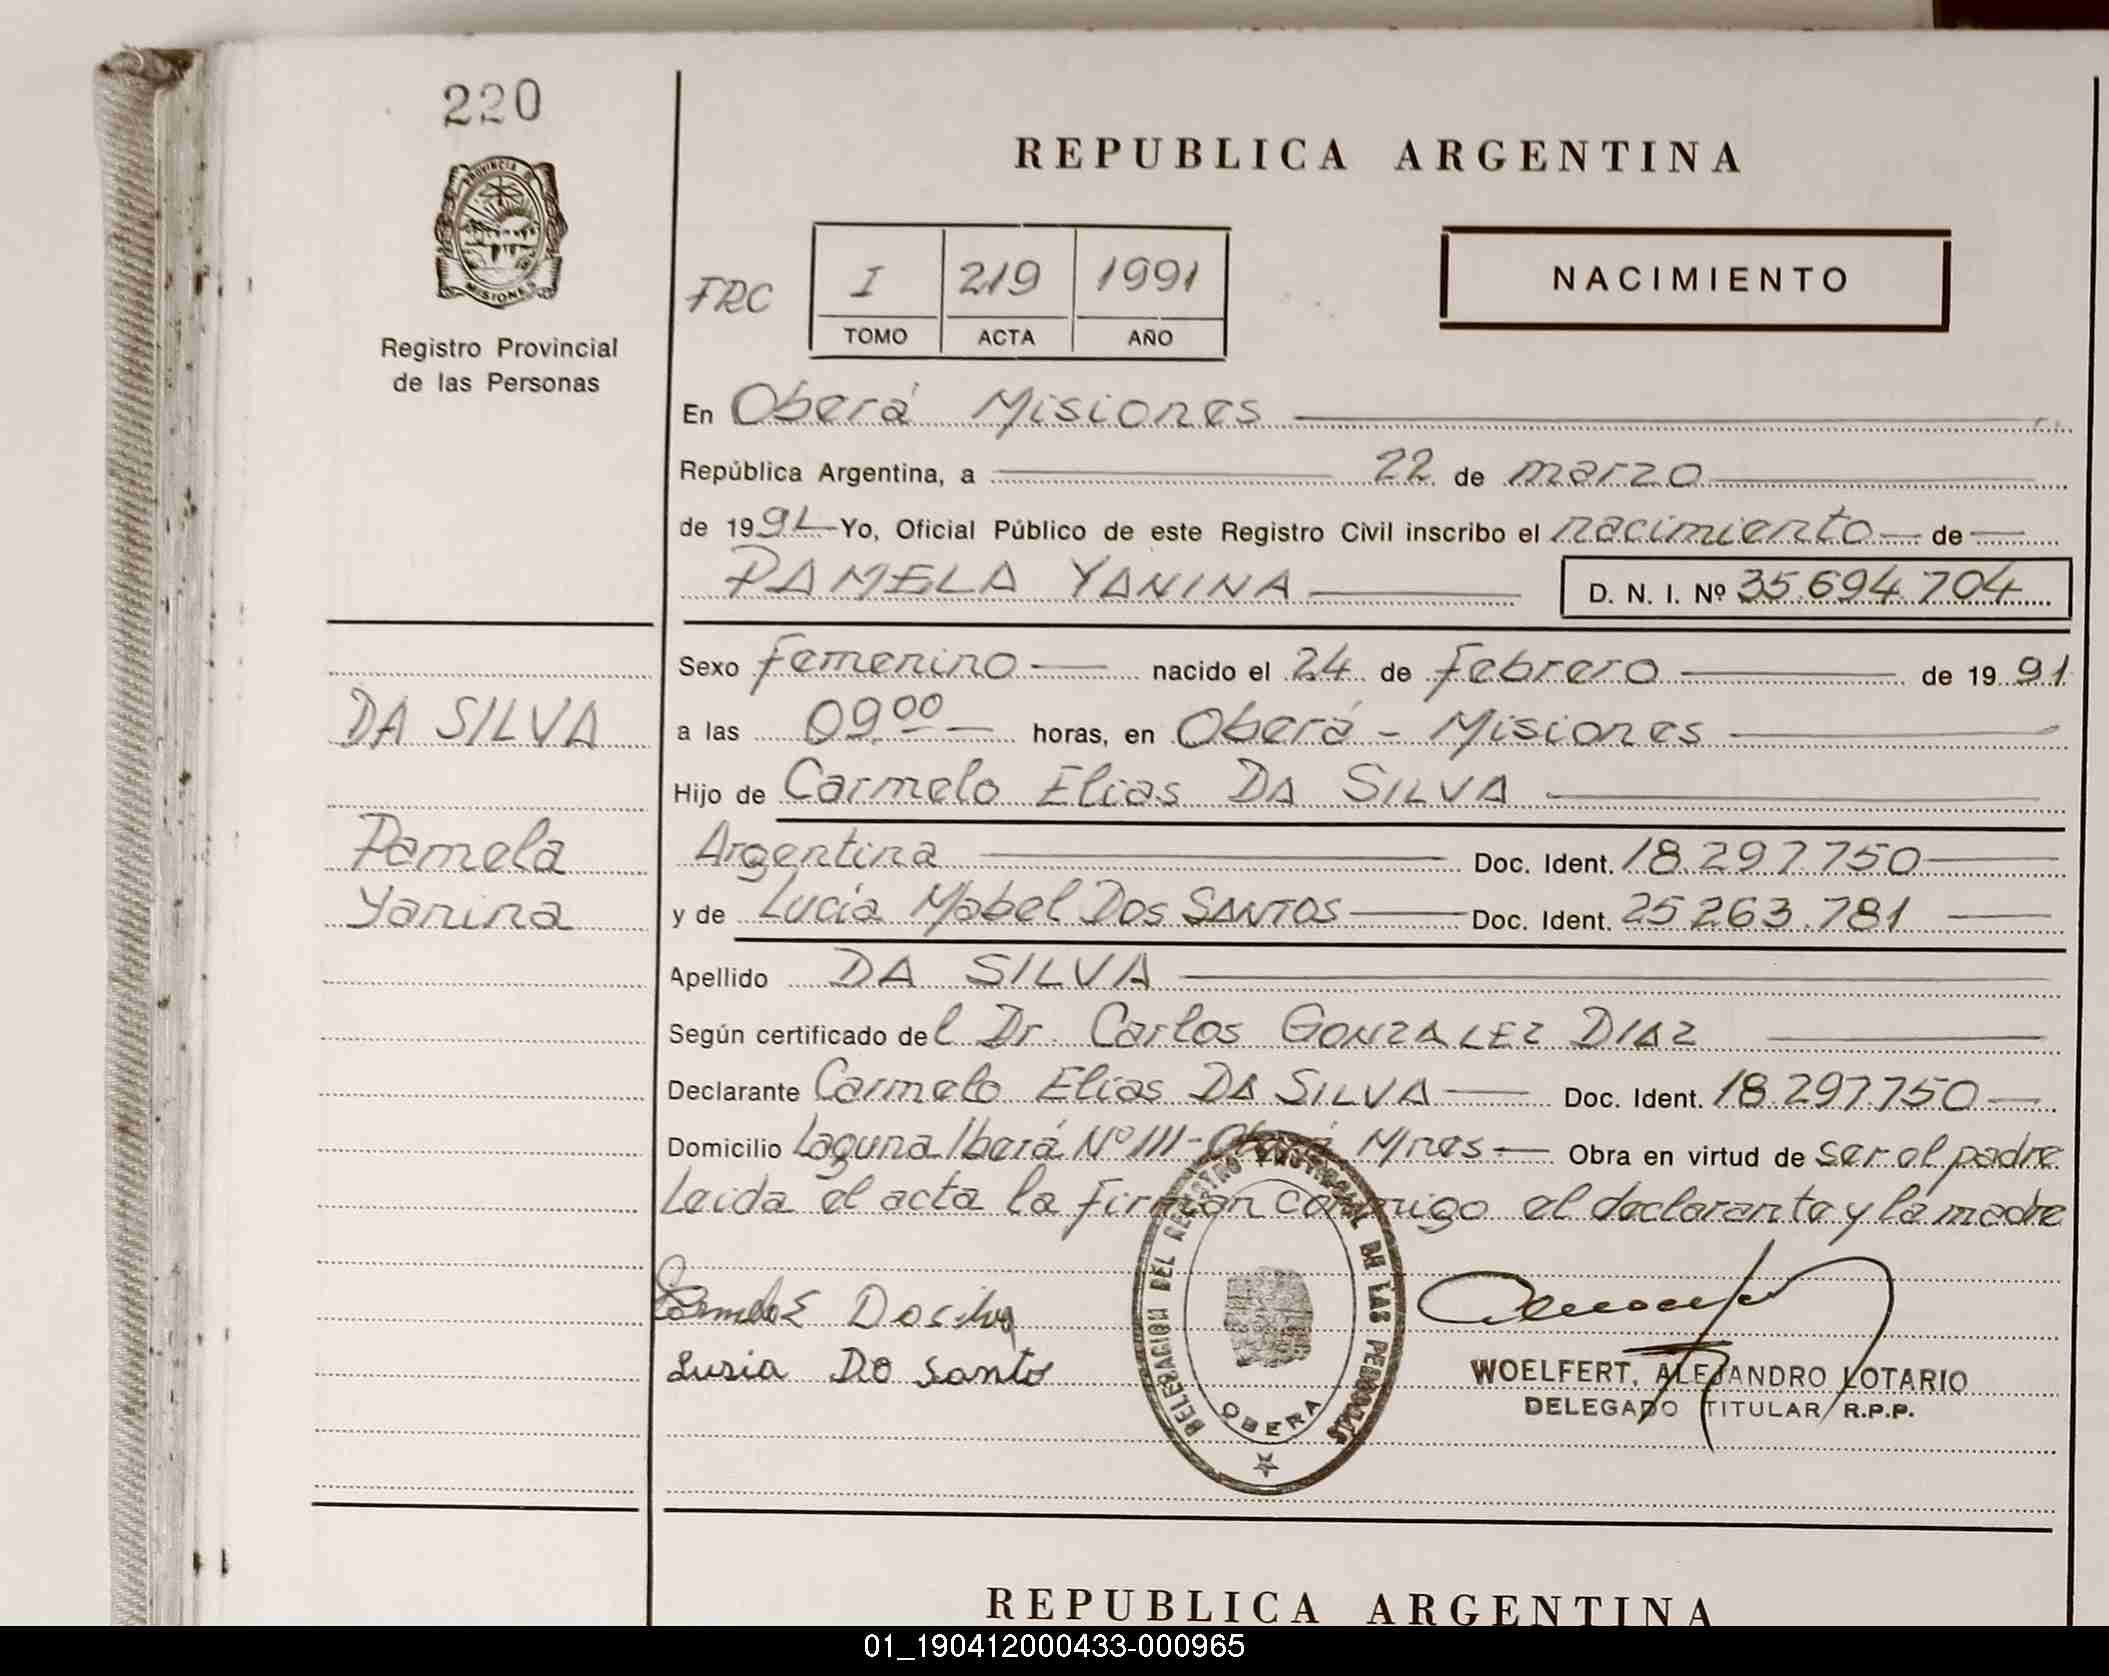 220
PROVINCIA DE
MISIONES
Registro Provincial
de las Personas
REPUBLICA ARGENTINA
FRC
I 219 1991
TOMO ACTA AÑO
NACIMIENTO
En Oberá Misiones
República Argentina, a 22 de marzo
de 1991 Yo, Oficial Público de este Registro Civil inscribo el nacimiento de
PAMELA YANINA D. N. I. Nº 35.694.704
Sexo femenino nacido el 24 de febrero de 1991
DA SILVA
a las 09.00 horas, en Oberá - Misiones
Hijo de Carmelo Elias DA SILVA
Pamela
Yanina
Argentina Doc. Ident. 18.297.750
y de Lucia Mabel DOS SANTOS Doc. Ident. 25.263.781
Apellido DA SILVA
Según certificado del Dr. Carlos GONZALEZ DIAZ
Declarante Carmelo Elias DA SILVA Doc. Ident. 18.297.750
Domicilio Laguna Iberá Nº 111 - Oberá Mnes Obra en virtud de ser el padre
Leida el acta la firman conmigo el declarante y la madre
Carmelo E Da silva
Lusia DO Santo
DELEGACION DEL REGISTRO PROVINCIAL DE LAS PERSONAS
OBERA
WOELFERT, ALEJANDRO LOTARIO
DELEGADO TITULAR R.P.P.
REPUBLICA ARGENTINA
01_190412000433-000965